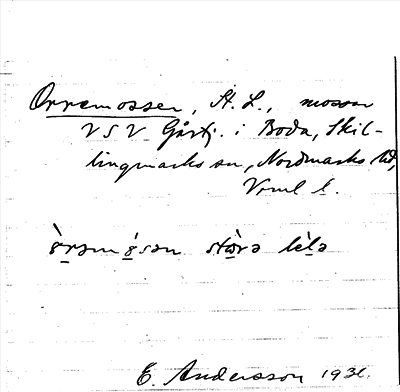 Orremossen, St. L., mossar
VSV Gårtj. i Boda, Skil-
lingmarks sn, Nordmarks hd,
Vrml l.
òrəmósən stòrə lèlə
E. Andersson 193